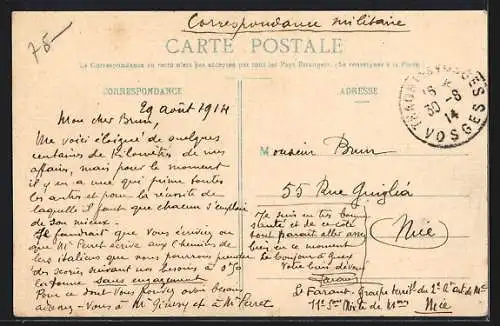 75-
Correspondance militaire
CARTE POSTALE
La Correspondance au recto n'est pas acceptée par tous les Pays Étrangers. (Se renseigner à la Poste)
CORRESPONDANCE
ADRESSE
VOSGES
30-8
14
29 août 1914
Mon cher Brun,
Me voici éloigné de quelques
centaines de kilomètres de mes
affaires, mais pour le moment
il y en a une qui prime toutes
les autres et pour la réussite de
laquelle il faut que chacun s'emploie
de son mieux.
Il faudrait que vous écriviez ou
que Mr Perret écrive aux Chemins de
fers italiens que nous pourrons prendre
des scories suivant nos besoins à
la tonne sans engagement
Pour ce dont vous pouvez avoir besoin
Vous à Mr et à Mr Perret
Monsieur Brun
55 Rue Guiglia
Nice
Je suis en très bonne
santé et de ce côté
tout paraît aller assez
bien en ce moment
Votre bien dévoué
Farant
Groupe territ. du
Nice